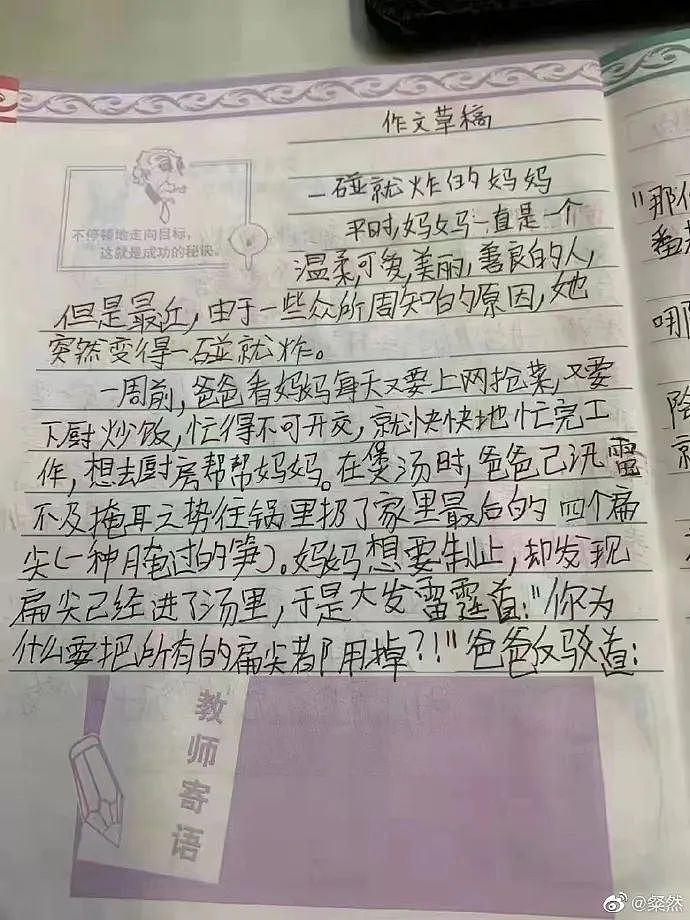 作文草稿
不停顿地走向目标,
这就是成功的秘诀。
一碰就炸的妈妈
平时,妈妈一直是一个
温柔,可爱,美丽,善良的人,
但是最近,由于一些众所周知的原因,她
突然变得一碰就炸。
一周前,爸爸看妈妈每天又要上网抢菜,又要
下厨炒饭,忙得不可开交,就快快地忙完工
作,想去厨房帮帮妈妈。在煲汤时,爸爸已汛雷
不及掩耳之势往锅里扔了家里最后的四个扁
尖(一种腌过的笋)。妈妈想要制止,却发现
扁尖已经进了汤里,于是大发雷霆道:"你为
什么要把所有的扁尖都用掉?!"爸爸反驳道:
教师寄语
"那
@粲然